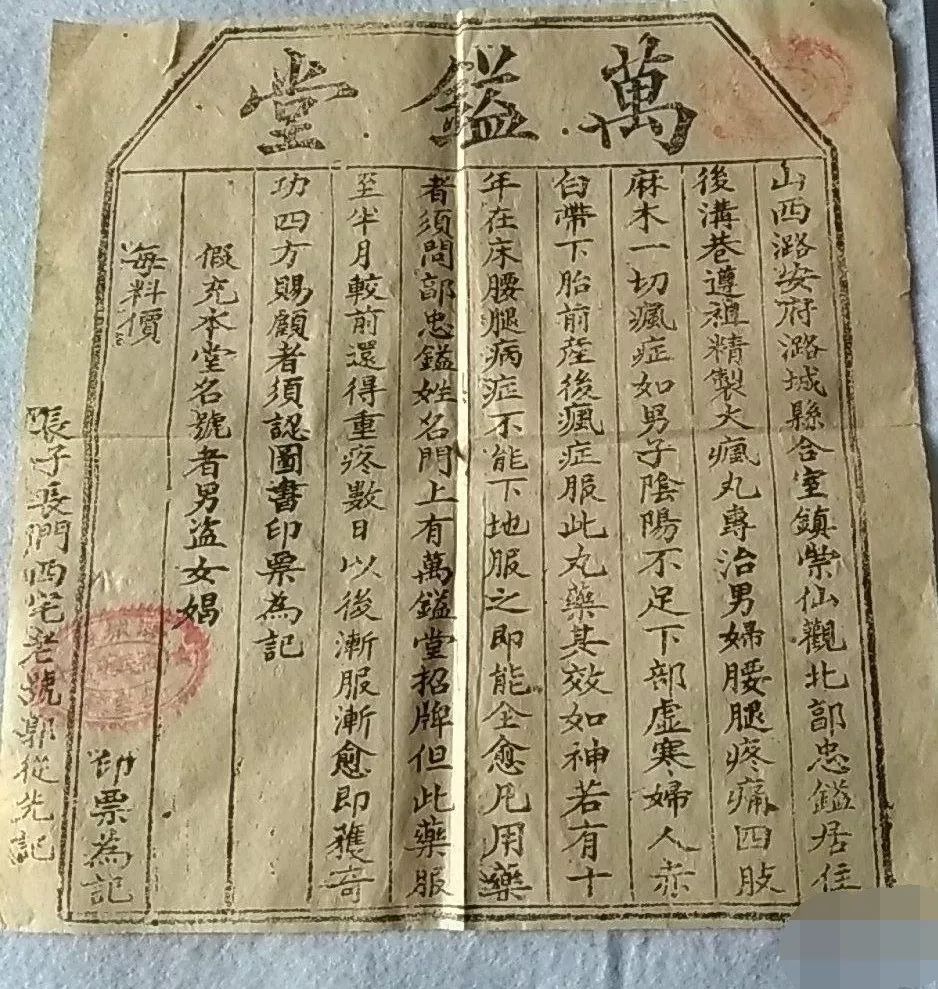 萬鎰堂
山西潞安府潞城縣合室鎮紫仙觀北郭忠鎰居住
後溝巷遵祖精製大瘋丸專治男婦腰腿疼痛四肢
麻木一切瘋症如男子陰陽不足下部虛寒婦人赤
白帶下胎前產後瘋症服此丸藥其效如神若有十
年在床腰腿病症不能下地服之即能全愈凡用藥
者須問郭忠鎰姓名門上有萬鎰堂招牌但此藥服
至半月較前還得重疼數日以後漸服漸愈即獲奇
功四方賜顧者須認圖書印票為記
假充本堂名號者男盜女娼
每料價
印票為記
張子長們四宅老號郭從先記